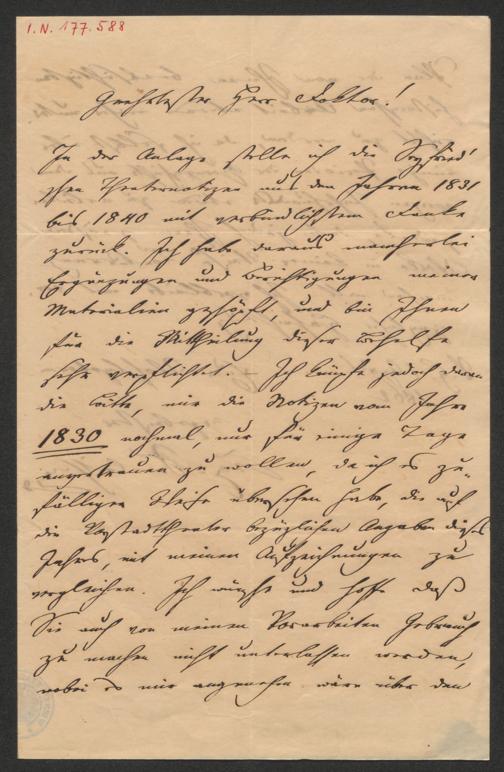 I.N. 177.588
Geehrtester Herr Doktor!
In der Anlage stelle ich die Seyfried'
schen Theaternotizen aus den Jahren 1831
bis 1840 mit verbindlichstem Danke
zurück. Ich habe daraus mancherlei
Ergänzungen und Berichtigungen meiner
Materialien geschöpft, und bin Ihnen
für die Mittheilung dieser Behelfe
sehr verpflichtet. – Ich knüpfe jedoch daran
die Bitte, mir die Notizen vom Jahre
1830 nochmal, nur für einige Tage
anvertrauen zu wollen, da ich es zu-
fälliger Weise übersehen habe, die auf
die Vorstadttheater bezüglichen Angaben dieses
Jahres, mit meinen Aufzeichnungen zu
vergleichen. Ich wünsche und hoffe daß
Sie auch von meinen Vorarbeiten Gebrauch
zu machen nicht unterlassen werden,
wobei es mir angenehm wäre über den